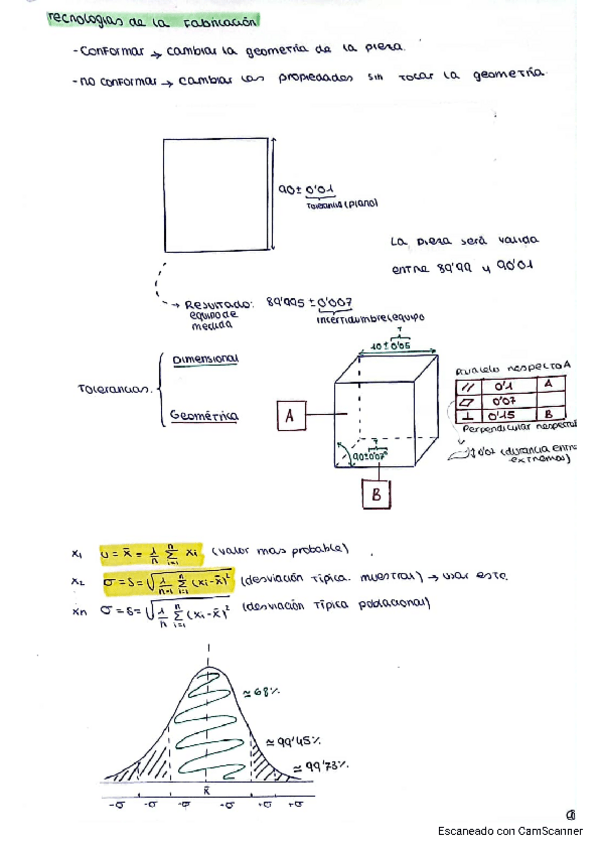 Tecnologías de la Fabricación
- Conformar → cambiar la geometría de la pieza.
- no conformar → cambiar las propiedades sin tocar la geometría.
90 ± 0'01
Tolerancia (plano)
La pieza será valida
entre 89'99 y 90'01
→ Resultado: 89'995 ± 0'007
equipo de medida
incertidumbre (equipo
T
10 ± 0'05
Tolerancias.
Dimensional
Geométrica
A
Paralelo respecto A
// 0'1 A
▱ 0'07
⊥ 0'15 B
Perpendicular respecto
0'07 (distancia entre
extremos)
T
90±0'07°
B
x₁ υ = x̄ = 1/n Σ xi (valor mas probable)
x₂ σ = s = √(1/(n-1) Σ (xi - x̄)²) (desviación típica. muestral) → usar este.
xn σ = s = √(1/n Σ (xi - x̄)²) (desviación típica poblacional)
≈ 68%
≈ 99'45%
≈ 99'73%
x̄
-σ -σ -σ -σ +σ +σ
Escaneado con CamScanner